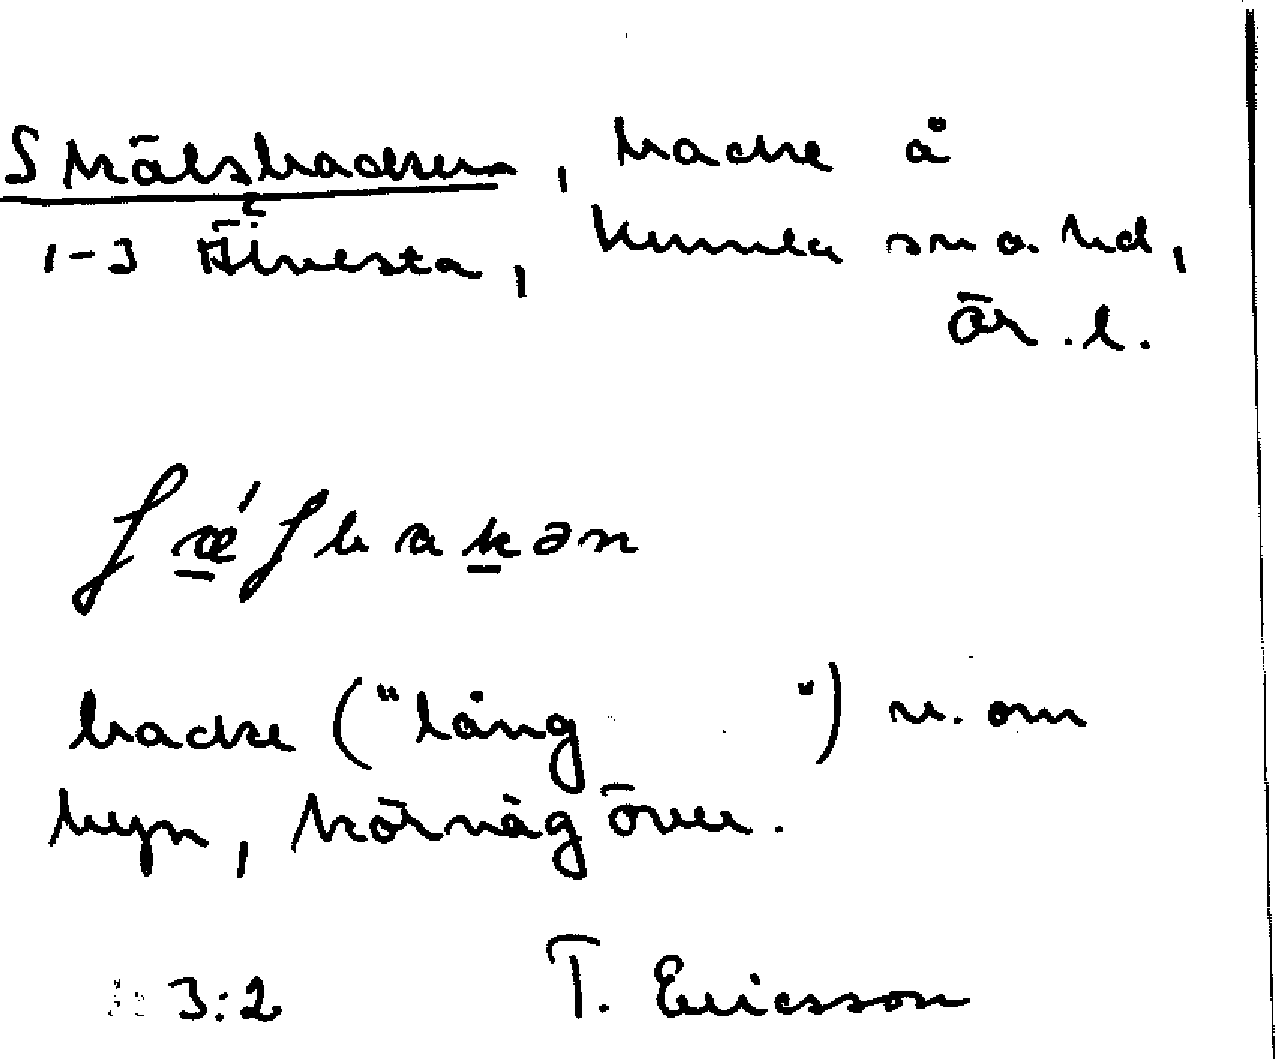 Skälsbacken, backe å
1-3 Älvesta, Kumla snd o. hd,
Är. l.
ʃǽʃbakən
backe ("lång ") v. om
byn, körväg över.
3:2 T. Ericsson